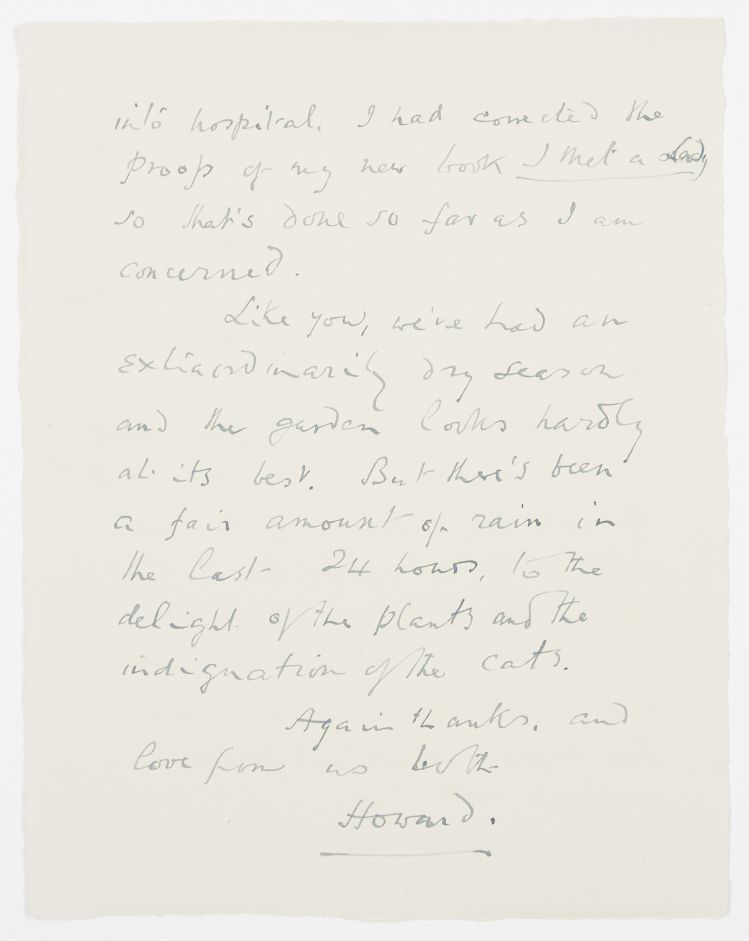 into hospital. I had corrected the
proofs of my new book I Met a Lady
so that's done so far as I am
concerned.
Like you, we've had an
extraordinarily dry season
and the garden looks hardly
at its best. But there's been
a fair amount of rain in
the last 24 hours, to the
delight of the plants and the
indignation of the cats.
Again thanks, and
love from us both
Howard.